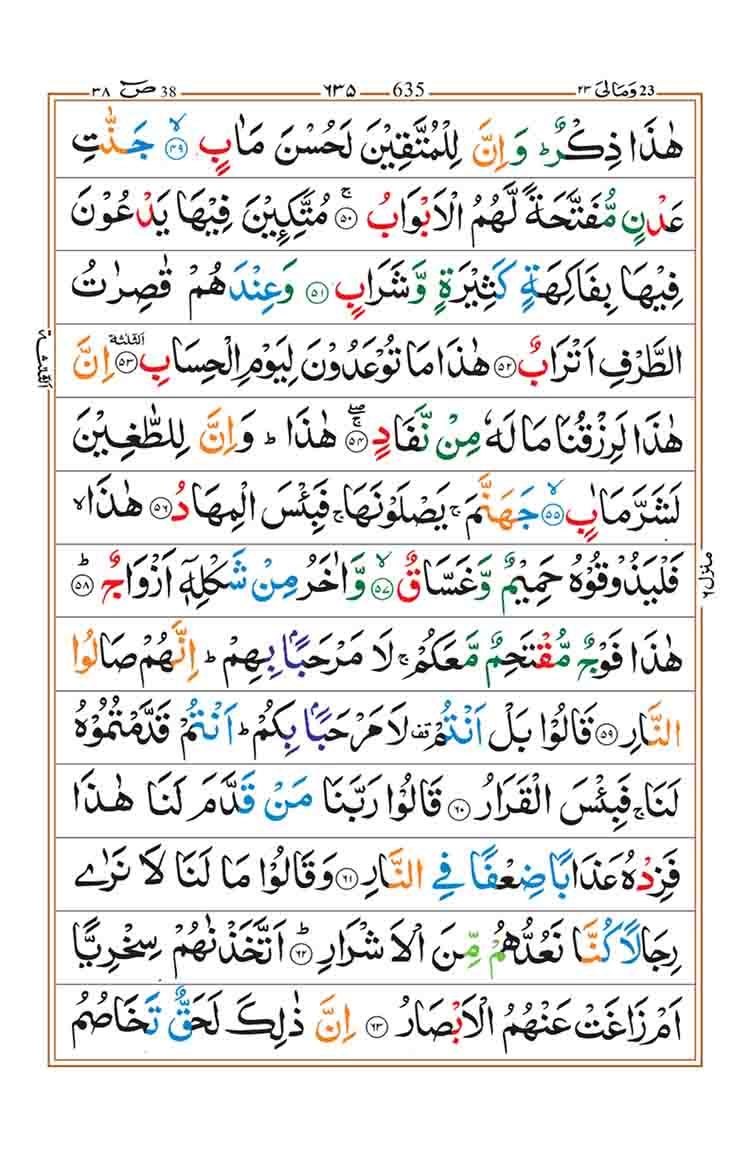 ٣٨ صٓ 38 ٦٣٥ 635 ٢٣ وَمَالِیَ 23
هٰذَا ذِكْرٌ ؕ وَ اِنَّ لِلْمُتَّقِیْنَ لَحُسْنَ مَاٰبٍ ۙ﴿۴۹﴾ جَنّٰتِ
عَدْنٍ مُّفَتَّحَةً لَّهُمُ الْاَبْوَابُ ۚ﴿۵۰﴾ مُتَّكِـِٕیْنَ فِیْهَا یَدْعُوْنَ
فِیْهَا بِفَاكِهَةٍ كَثِیْرَةٍ وَّ شَرَابٍ ﴿۵۱﴾ وَ عِنْدَهُمْ قٰصِرٰتُ
الطَّرْفِ اَتْرَابٌ ﴿۵۲﴾ هٰذَا مَا تُوْعَدُوْنَ لِیَوْمِ الْحِسَابِ ﴿۵۳﴾ اَلثَّلٰثَةُ اِنَّ
هٰذَا لَرِزْقُنَا مَا لَهٗ مِنْ نَّفَادٍ ۚۖ﴿۵۴﴾ هٰذَا ؕ وَ اِنَّ لِلطّٰغِیْنَ
لَشَرَّ مَاٰبٍ ۙ﴿۵۵﴾ جَهَنَّمَ ۚ یَصْلَوْنَهَا ۚ فَبِئْسَ الْمِهَادُ ﴿۵۶﴾ هٰذَا ۙ
فَلْیَذُوْقُوْهُ حَمِیْمٌ وَّ غَسَّاقٌ ۙ﴿۵۷﴾ وَّ اٰخَرُ مِنْ شَكْلِهٖۤ اَزْوَاجٌ ؕ﴿۵۸﴾
هٰذَا فَوْجٌ مُّقْتَحِمٌ مَّعَكُمْ ۚ لَا مَرْحَبًۢا بِهِمْ ؕ اِنَّهُمْ صَالُوا
النَّارِ ﴿۵۹﴾ قَالُوْا بَلْ اَنْتُمْ ۫ قف لَا مَرْحَبًۢا بِكُمْ ؕ اَنْتُمْ قَدَّمْتُمُوْهُ
لَنَا ۚ فَبِئْسَ الْقَرَارُ ﴿۶۰﴾ قَالُوْا رَبَّنَا مَنْ قَدَّمَ لَنَا هٰذَا
فَزِدْهُ عَذَابًا ضِعْفًا فِی النَّارِ ﴿۶۱﴾ وَ قَالُوْا مَا لَنَا لَا نَرٰی
رِجَالًا كُنَّا نَعُدُّهُمْ مِّنَ الْاَشْرَارِ ؕ﴿۶۲﴾ اَتَّخَذْنٰهُمْ سِخْرِیًّا
اَمْ زَاغَتْ عَنْهُمُ الْاَبْصَارُ ﴿۶۳﴾ اِنَّ ذٰلِكَ لَحَقٌّ تَخَاصُمُ
اَلثَّلٰثَة
منزل ٦